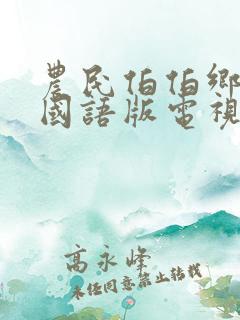 農民伯伯鄉
國語版電視
高永峰
未任同意禁止转载